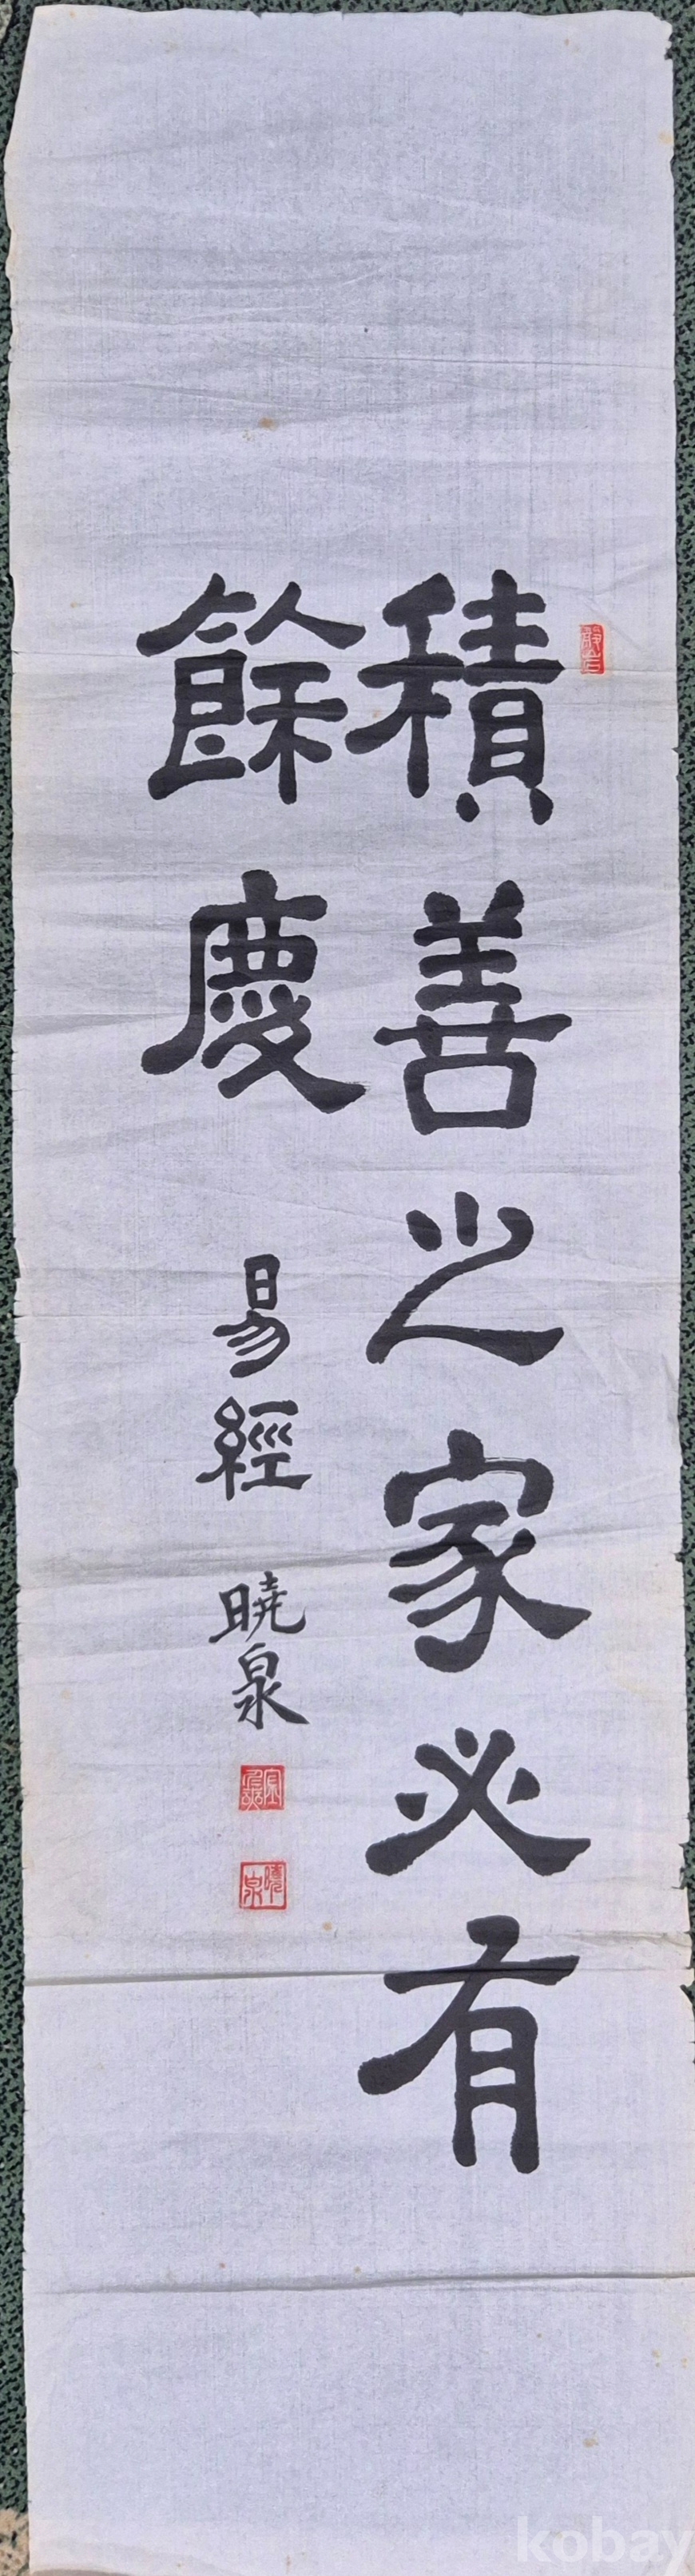 積善之家必有
餘慶
易經
曉泉
kobay